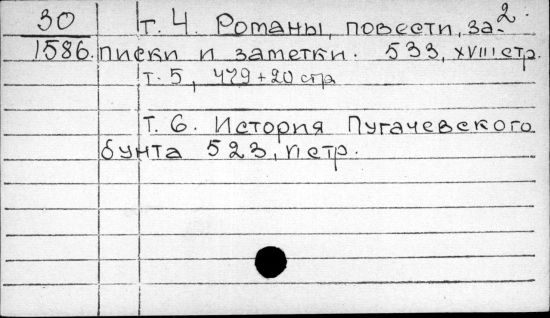 30 т. 4. Романы, повести, за- 2.
1586. писки и заметки. 533, XVIII стр.
т. 5, 479 + 20 стр
Т. 6. История Пугачевского
бунта 523, VI стр.